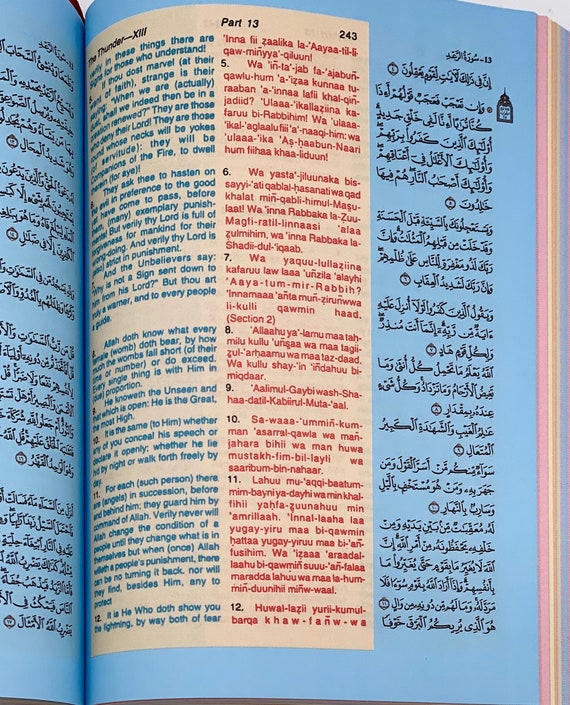 The Thunder—XIII
Part 13
243
١٣-سُورَةُ الرَّعْد
verily in these things there are
signs for those who understand!
If thou dost marvel (at their
want of faith), strange is their
saying: "When we are (actually)
dust, shall we indeed then be in a
creation renewed?" They are those
who deny their Lord! They are those
round whose necks will be yokes
(of servitude): they will be
Companions of the Fire, to dwell
therein (for aye)!
They ask thee to hasten on
the evil in preference to the good
Yet have come to pass, before
them, (many) exemplary punish-
ments! But verily thy Lord is full of
forgiveness for mankind for their
wrong-doing. And verily thy Lord
is (also) strict in punishment.
And the Unbelievers say:
"Why is not a Sign sent down to
him from his Lord?" But thou art
truly a warner, and to every people
a guide.
8. Allah doth know what every
female (womb) doth bear, by how
much the wombs fall short (of their
time or number) or do exceed.
Every single thing is with Him in
(due) proportion.
9. He knoweth the Unseen and
that which is open: He is the Great,
the most High.
10. It is the same (to Him) whether
any of you conceal his speech or
declare it openly; whether he lie
hid by night or walk forth freely by
day.
11. For each (such person) there
are (angels) in succession, before
and behind him; they guard him by
command of Allah. Verily never will
Allah change the condition of a
people until they change what is in
themselves but when (once) Allah
willeth a people's punishment, there
can be no turning it back. nor will
they find, besides Him, any to
protect
12. It is He Who doth show you
the lightning, by way both of fear
'Inna fii zaalika la-'Aayaa-til-li-
qaw-miñyya'-qiluun!
5. Wa 'iñ-ta'-jab fa-'ajabuñ-
qawlu-hum 'a-'izaa kunnaa tu-
raaban 'a-'innaa lafii khal-qiñ-
jadiid? 'Ulaaa-'ikallaziina ka-
faruu bi-Rabbihim! Wa 'ulaaa-
'ikal-'aglaalufiii 'a'-naaqi-him: wa
'ulaaa-'ika 'As-haabun-Naari
hum fiihaa khaa-liduun!
6. Wa yasta'-jiluunaka bis-
sayyi-'ati qablal-hasanati wa qad
khalat miñ-qabli-himul-Masu-
laat! Wa 'inna Rabbaka la-Zuu-
Magfi-ratil-linnaasi 'alaa
zulmihim, wa 'inna Rabbaka la-
Shadii-dul-'iqaab.
7. Wa yaquu-lullaziina
kafaruu law laaa 'uñzila 'alayhi
'Aaya-tum-mir-Rabbih?
'Innamaaa 'añta muñ-ziruñwwa
li-kulli qawmin haad.
(Section 2)
8. 'Allaahu ya'-lamu maa tah-
milu kullu 'uñsaa wa maa tagii-
zul-'arhaamu wa maa taz-daad.
Wa kullu shay-'in 'iñdahuu bi-
miqdaar.
9. 'Aalimul-Gaybi wash-Sha-
haa-datil-Kabiirul-Muta-'aal.
10. Sa-waaa-'ummiñ-kum-
man 'asarral-qawla wa mañ
jahara bihii wa man huwa
mustakh-fim-bil-layli wa
saaribum-bin-nahaar.
11. Lahuu mu-'aqqi-baatum-
mim-bayni ya-dayhi wa min khal-
fihii yahfa-zuunahuu min
'amrillaah. 'Innal-laaha laa
yugay-yiru maa bi-qawmin
hattaa yugay-yiruu maa bi-'añ-
fusihim. Wa 'izaaa 'araadal-
laahu bi-qawmiñ suuu-'añ-falaa
maradda lahuu wa maa la-hum-
miñ-duunihii miñw-waal.
12. Huwal-lazii yurii-kumul-
barqa khaw-fañw-wa
إِنَّ فِي ذَٰلِكَ لَآيَاتٍ لِّقَوْمٍ يَعْقِلُونَ ۝٤
وَإِن تَعْجَبْ فَعَجَبٌ قَوْلُهُمْ أَءِذَا
كُنَّا تُرَابًا أَءِنَّا لَفِي خَلْقٍ جَدِيدٍ
أُولَٰئِكَ الَّذِينَ كَفَرُوا بِرَبِّهِمْ
وَأُولَٰئِكَ الْأَغْلَالُ فِي أَعْنَاقِهِمْ
وَأُولَٰئِكَ أَصْحَابُ النَّارِ هُمْ فِيهَا
خَالِدُونَ ۝٥
وَيَسْتَعْجِلُونَكَ بِالسَّيِّئَةِ قَبْلَ الْحَسَنَةِ
وَقَدْ خَلَتْ مِن قَبْلِهِمُ الْمَثُلَاتُ وَإِنَّ
رَبَّكَ لَذُو مَغْفِرَةٍ لِّلنَّاسِ عَلَىٰ ظُلْمِهِمْ
وَإِنَّ رَبَّكَ لَشَدِيدُ الْعِقَابِ ۝٦
وَيَقُولُ الَّذِينَ كَفَرُوا لَوْلَا أُنزِلَ عَلَيْهِ
آيَةٌ مِّن رَّبِّهِ إِنَّمَا أَنتَ مُنذِرٌ
وَلِكُلِّ قَوْمٍ هَادٍ ۝٧
اللَّهُ يَعْلَمُ مَا تَحْمِلُ كُلُّ أُنثَىٰ وَمَا
تَغِيضُ الْأَرْحَامُ وَمَا تَزْدَادُ وَكُلُّ شَيْءٍ
عِندَهُ بِمِقْدَارٍ ۝٨
عَالِمُ الْغَيْبِ وَالشَّهَادَةِ الْكَبِيرُ
الْمُتَعَالِ ۝٩
سَوَاءٌ مِّنكُم مَّنْ أَسَرَّ الْقَوْلَ وَمَن
جَهَرَ بِهِ وَمَنْ هُوَ مُسْتَخْفٍ بِاللَّيْلِ
وَسَارِبٌ بِالنَّهَارِ ۝١٠
لَهُ مُعَقِّبَاتٌ مِّن بَيْنِ يَدَيْهِ وَمِنْ
خَلْفِهِ يَحْفَظُونَهُ مِنْ أَمْرِ اللَّهِ إِنَّ
اللَّهَ لَا يُغَيِّرُ مَا بِقَوْمٍ حَتَّىٰ يُغَيِّرُوا مَا
بِأَنفُسِهِمْ وَإِذَا أَرَادَ اللَّهُ بِقَوْمٍ سُوءًا فَلَا
مَرَدَّ لَهُ وَمَا لَهُم مِّن دُونِهِ مِن وَالٍ ۝١١
هُوَ الَّذِي يُرِيكُمُ الْبَرْقَ خَوْفًا